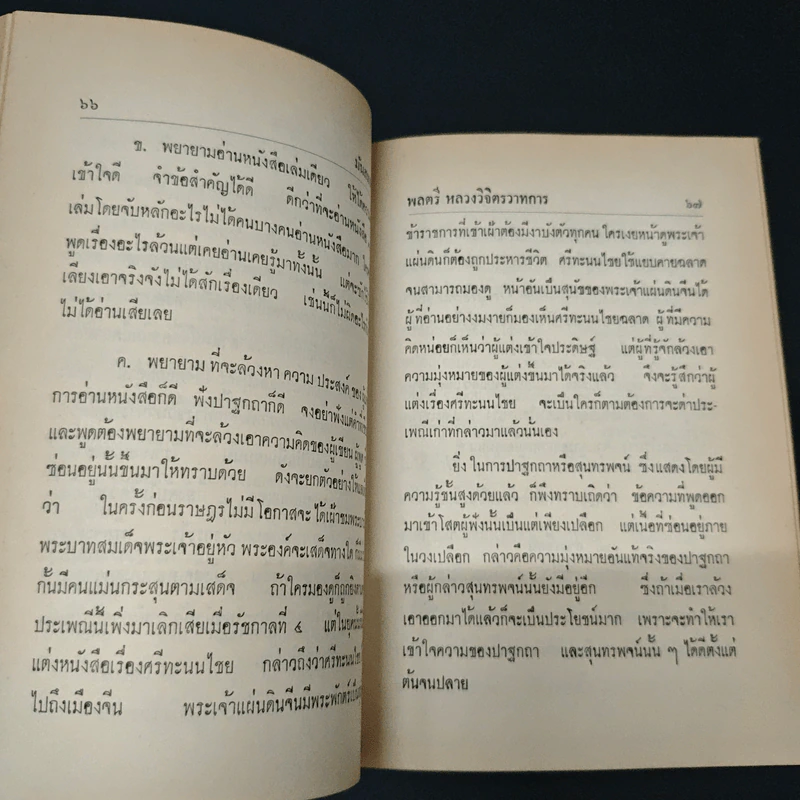 ๖๖
ข. พยายามอ่านหนังสือเล่มเดียว ให้ได้
เข้าใจดี จำข้อสำคัญได้ดี ดีกว่าที่จะอ่านหนังสือ
เล่มโดยจับหลักอะไรไม่ได้คนบางคนอ่านหนังสือมาก
พูดเรื่องอะไรล้วนแต่เคยอ่านเคยรู้มาทั้งนั้น แต่จะ
เสี่ยงเอาจริงจังไม่ได้สักเรื่องเดียว เช่นนี้ก็ไม่ผิดอะไร
ไม่ได้อ่านเสียเลย
ค. พยายาม ที่จะล้วงหา ความ ประสงค์ ของ
การอ่านหนังสือก็ดี ฟังปาฐกถาก็ดี จงอย่าฟังแต่คำที่
และพูดต้องพยายามที่จะล้วงเอาความคิดของผู้เขียน
ซ่อนอยู่นั้นขึ้นมาให้ทราบด้วย ดังจะยกตัวอย่างให้
ว่า ในครั้งก่อนราษฎรไม่มี โอกาสจะ ได้เฝ้าชมพระ
พระบาทสมเด็จพระเจ้าอยู่หัว พระองค์จะเสด็จทางใด
กั้นมีคนแม่นกระสุนตามเสด็จ ถ้าใครมองดูก็ถูกยิง
ประเพณีนี้เพิ่งมาเลิกเสียเมื่อรัชกาลที่ ๔ แต่ในยุค
แต่งหนังสือเรื่องศรีทะนนไชย กล่าวถึงว่าศรีทะนนไชย
ไปถึงเมืองจีน พระเจ้าแผ่นดินจีนมีพระพักตร์
พลตรี หลวงวิจิตรวาทการ ๖๗
ข้าราชการที่เข้าเฝ้าต้องมีงาบังตัวทุกคน ใครเงยหน้าดูพระเจ้า
แผ่นดินก็ต้องถูกประหารชีวิต ศรีทะนนไชยใช้แยบคายฉลาด
จนสามารถมองดู หน้าอันเป็นสุนัขของพระเจ้าแผ่นดินจีนได้
ผู้ที่อ่านอย่างงมงายก็มองเห็นศรีทะนนไชยฉลาด ผู้ที่มีความ
คิดหน่อยก็เห็นว่าผู้แต่งเข้าใจประดิษฐ์ แต่ผู้ที่รู้จักล้วงเอา
ความมุ่งหมายของผู้แต่งขึ้นมาได้จริงแล้ว จึงจะรู้สึกว่าผู้
แต่งเรื่องศรีทะนนไชย จะเป็นใครก็ตามต้องการจะด่าประ-
เพณีเก่าที่กล่าวมาแล้วนั่นเอง
ยิ่ง ในการปาฐกถาหรือสุนทรพจน์ ซึ่งแสดงโดยผู้มี
ความรู้ชั้นสูงด้วยแล้ว ก็พึงทราบเถิดว่า ข้อความที่พูดออก
มาเข้าโสตผู้ฟังนั้นเป็นแต่เพียงเปลือก แต่เนื้อที่ซ่อนอยู่ภาย
ในวงเปลือก กล่าวคือความมุ่งหมายอันแท้จริงของปาฐกถา
หรือผู้กล่าวสุนทรพจน์นั้นยังมีอยู่อีก ซึ่งถ้าเมื่อเราล้วง
เอาออกมาได้แล้วก็จะเป็นประโยชน์มาก เพราะจะทำให้เรา
เข้าใจความของปาฐกถา และสุนทรพจน์นั้น ๆ ได้ดีตั้งแต่
ต้นจนปลาย